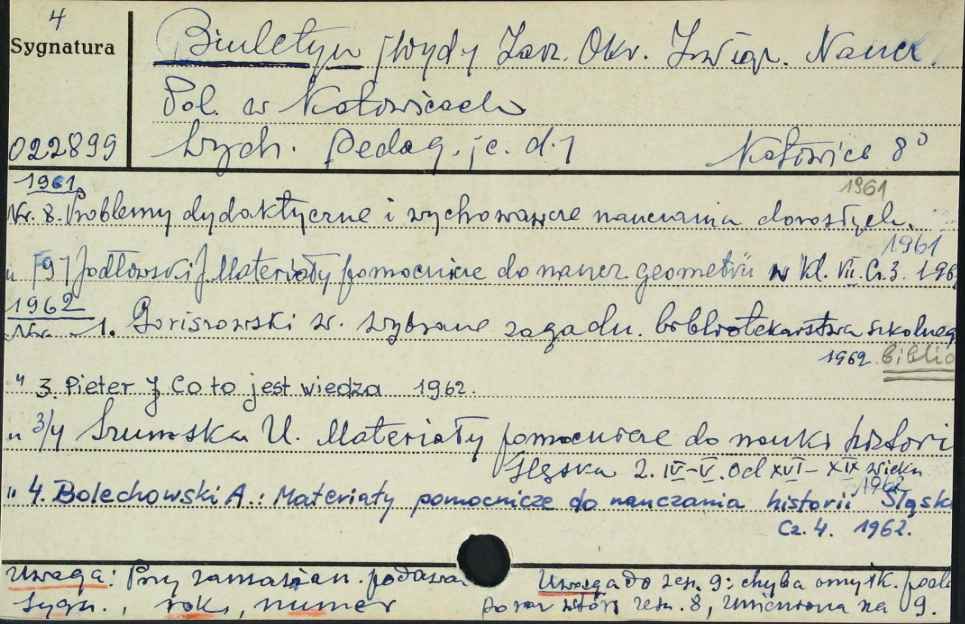 4
Sygnatura
Biuletyn /Wydz Zarz. Okr. Związ. Naucz.
Pol. w Katowicach
022899
Wych. Pedag. /c. d./ Katowice 8°
1961 1961
Nr. 8. Problemy dydaktyczne i wychowawcze nauczania dorosłych.
1961
" [9] Jodłowski J. Materiały pomocnicze do naucz geometrii w kl. VII. Cz. 3. 196
1962
Nr. 1. Goriszowski W. Wybrane zagadn. bibliotekarstwa szkolneg
1962 biblio
" 3. Pieter J Co to jest wiedza 1962.
" 3/4 Szumska U. Materiały pomocnicze do nauki histori
Śląska 2. IV-V. Od XVI - XIX wieku
1962
" 4. Bolechowski A.: Materiały pomocnicze do nauczania historii Śląsk
Cz. 4. 1962.
Uwaga: Przy zamawian. podawa
sygn., rok, numer
Uwaga do zesz. 9: chyba omyłk.
zesz. 8, zmieniona na 9.